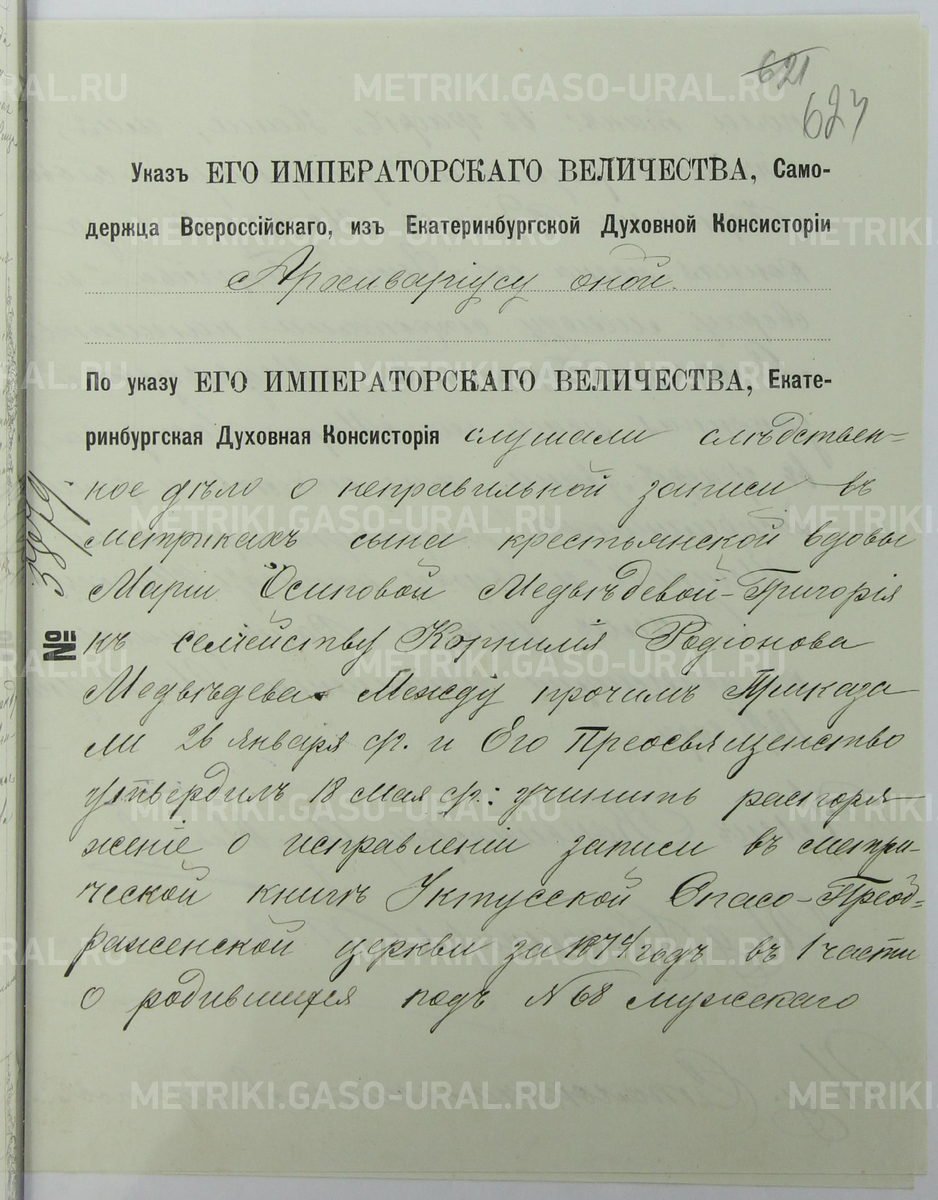 621
624
Указъ ЕГО ИМПЕРАТОРСКАГО ВЕЛИЧЕСТВА, Само-
держца Всероссійскаго, изъ Екатеринбургской Духовной Консисторіи
Архиваріусу оной.
По указу ЕГО ИМПЕРАТОРСКАГО ВЕЛИЧЕСТВА, Екате-
ринбургская Духовная Консисторія слушали слѣдствен=
ное дѣло о неправильной записи въ
метрикахъ сына крестьянской вдовы
Маріи Осиповой Медвѣдевой-Григорія
къ семейству Корнилія Родіонова
Медвѣдева. Между прочимъ Приказа
ли 26 января ср. и Его Преосвященство
утвердилъ 18 мая ср.: учинить распоря-
женіе о исправленіи записи въ метри-
ческой книгѣ Уктусской Спасо-Преоб=
раженской церкви за 1874 годъ въ 1 части
о родившихся подъ №68 мужскаго
№
METRIKI.GASO-URAL.RU